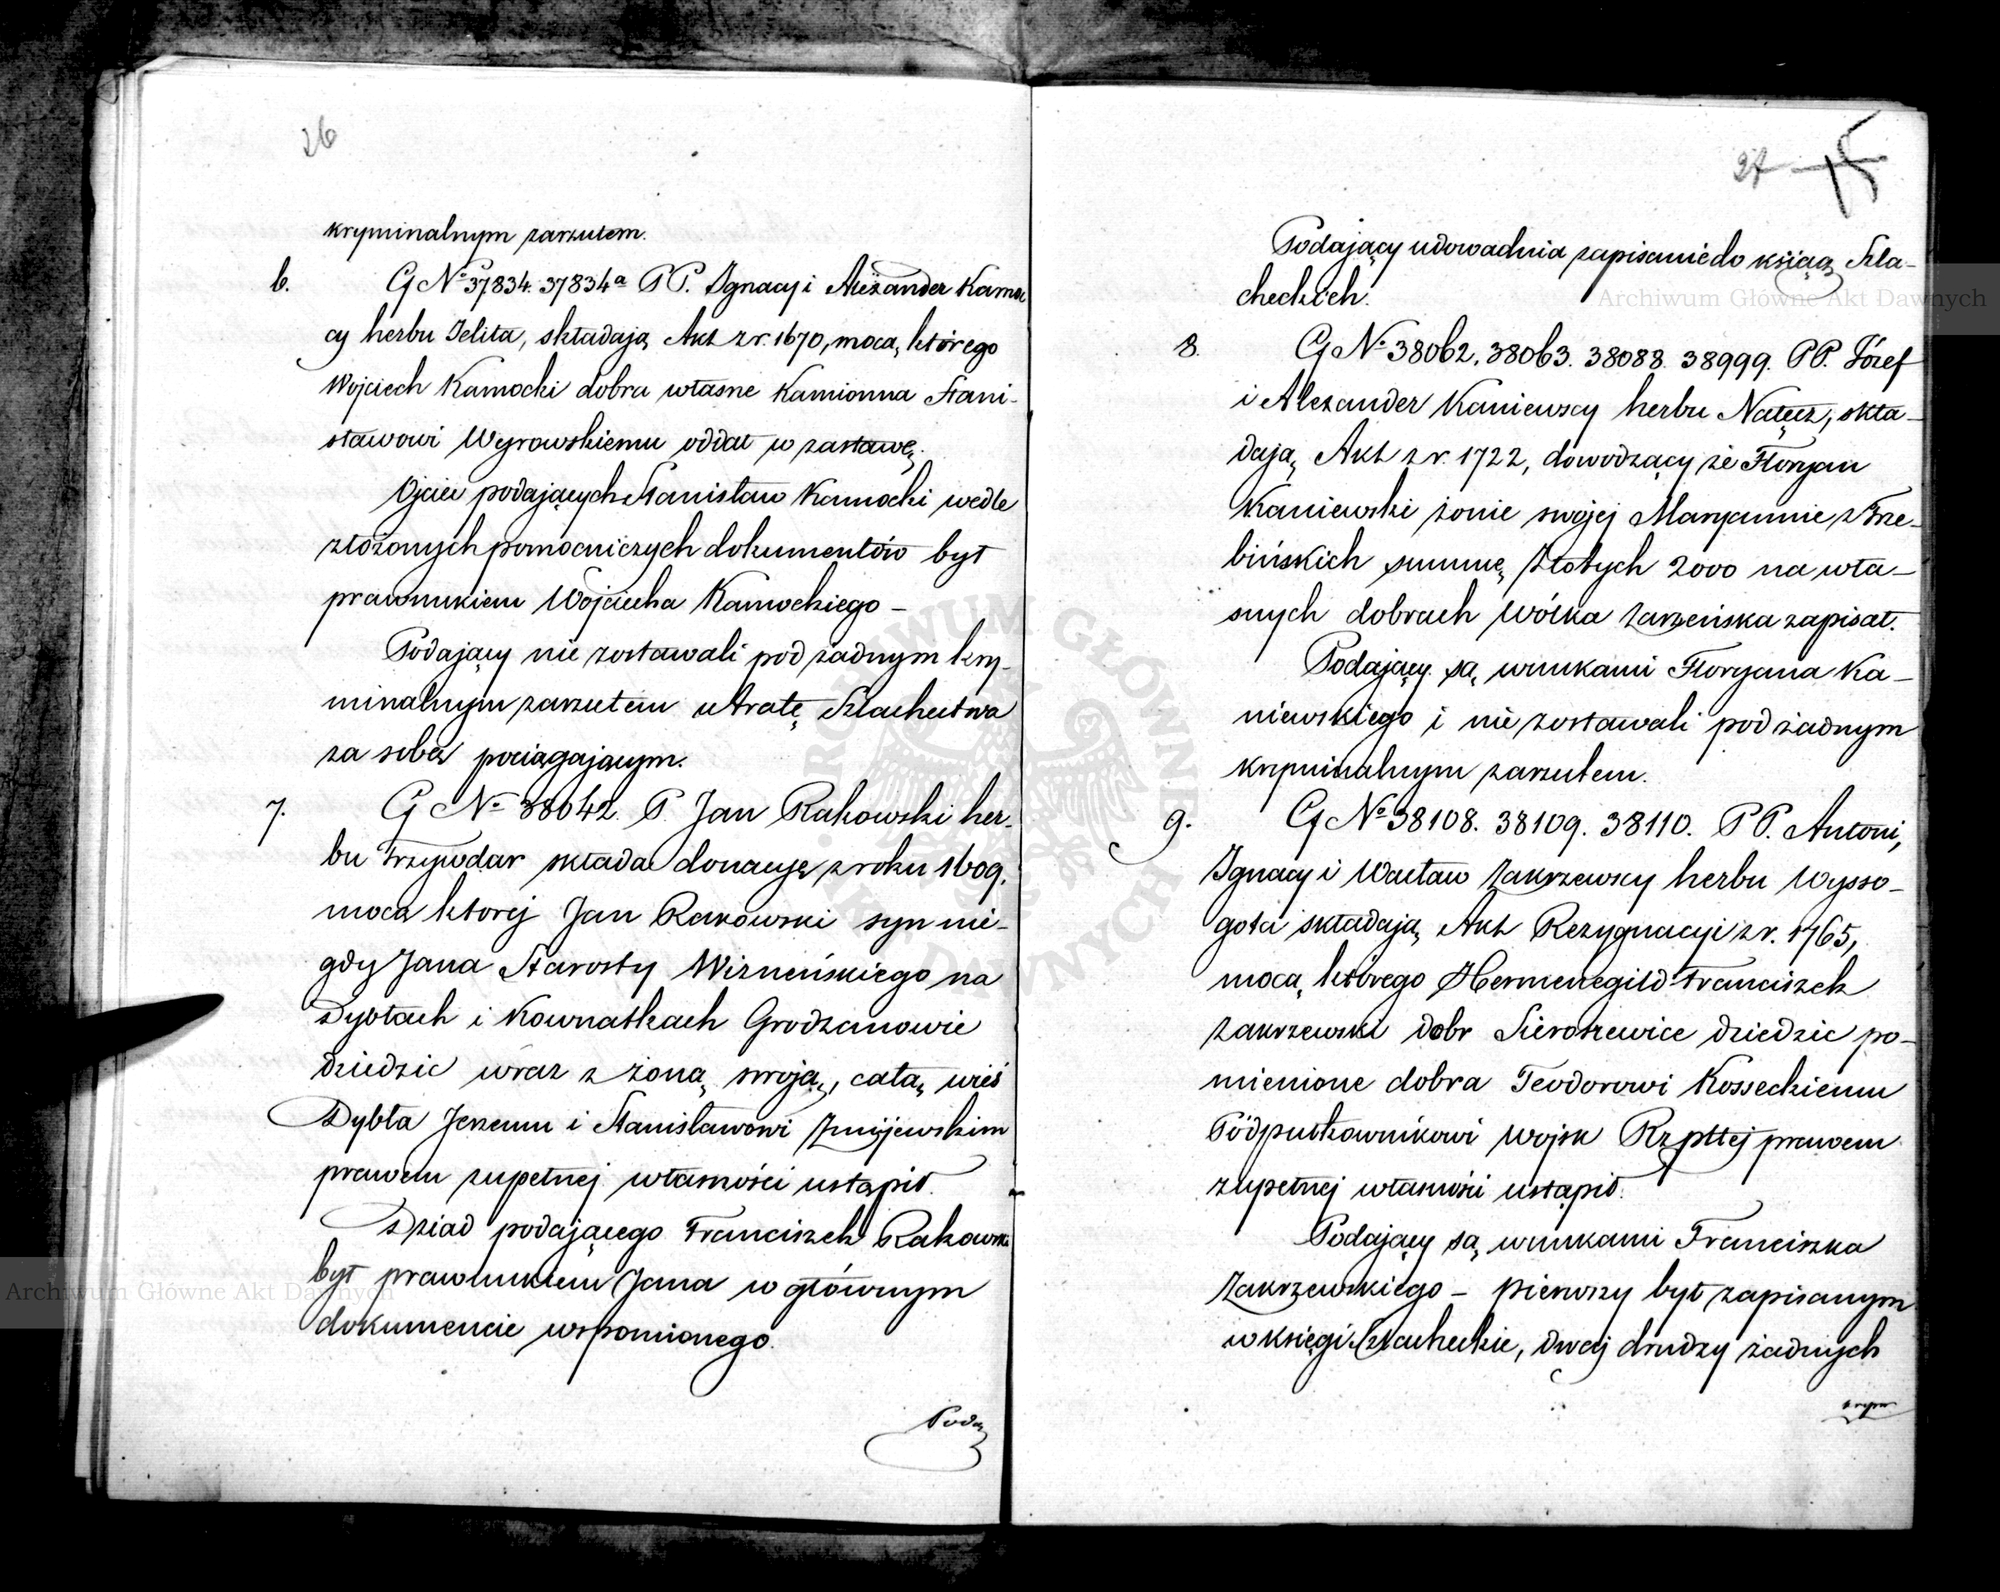 26
kryminalnym zarzutem.
6. G No 37834. 37834a PP. Ignacy i Alexander Kamoc
cy herbu Jelita, składają Akt z r. 1670, mocą którego
Wojciech Kamocki dobra własne Kamionna Stani-
sławowi Wyrowskiemu oddał w zastawę.
Ojciec podających Stanisław Kamocki wedle
złożonych pomocniczych dokumentów był
prawnukiem Wojciecha Kamockiego –
Podający nie zostawali pod żadnym kry-
minalnym zarzutem utratę Szlachectwa
za sobą pociągającym.
7. G No 38042. P. Jan Rakowski her-
bu Trzywdar składa donacyę z roku 1609.
mocą ktorej Jan Rakowski syn nie-
gdy Jana Starosty Wizneńskiego na
Dybłach i Kownatkach Grodzanowie
dziedzic wraz z żoną swoją, całą wieś
Dybła Jerzemu i Stanisławowi Zmijewskim
prawem zupełnej własności ustąpił.
Dziad podającego Franciszek Rakowski
był prawnukiem Jana w głównym
dokumencie wspomionego.
Podaj
27
Podający udowadnia zapisanie do ksiąg Szla-
checkich.
8. G No 38062. 38063. 38088. 38999. PP. Józef
i Alexander Kaniewscy herbu Nałęcz, skła-
dają Akt z r. 1722, dowodzący że Floryan
Kaniewski żonie swojej Maryannie z Trze-
bińskich summę Złotych 2000 na wła-
snych dobrach Wólka Zarzeńska zapisał.
Podający są wnukami Floryana Ka-
niewskiego i nie zostawali pod żadnym
kryminalnym zarzutem.
9. G No 38108. 38109. 38110. PP. Antoni,
Ignacy i Wacław Zakrzewscy herbu Wysso-
gota składają Akt Rezygnacyi z r. 1765,
mocą którego Hermenegild Franciszek
Zakrzewski dobr Sieroszewice dziedzic po-
mienione dobra Teodorowi Kosseckiemu
Podpułkownikowi wojsk Rzpltej prawem
zupełnej własności ustąpił.
Podający są wnukami Franciszka
Zakrzewskiego – pierwszy był zapisanym
w księgi Szlacheckie, dwaj drudzy żadnych
krym
Archiwum Główne Akt Dawnych
Archiwum Główne Akt Dawnych
ARCHIWUM GŁÓWNE AKT DAWNYCH